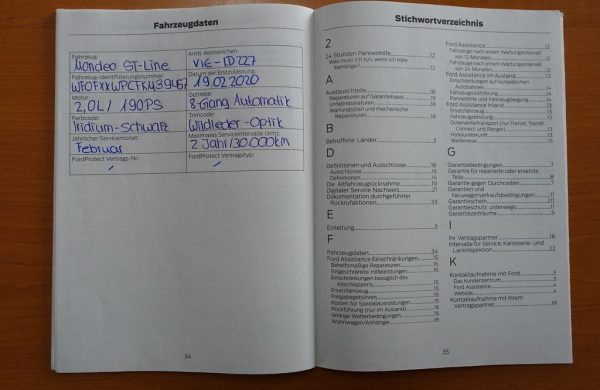 Fahrzeugdaten
Fahrzeug:
Mondeo ST-Line
Amtl. Kennzeichen:
VIE-FD227
Fahrzeug-Identifizierungsnummer:
Datum der Erstzulassung:
19.02.2020
Motor:
2,0L / 190PS
Getriebe:
8-Gang Automatik
Farbcode:
Iridium-Schwarz
Trimcode:
Wildleder-Optik
Jährlicher Servicemonat:
Februar
Maximales Serviceintervalle (km):
2 Jahr/30.000km
FordProtect Vertrags-Nr.:
FordProtect Vertragstyp:
34
Stichwortverzeichnis
2
24 Stunden Pannenhilfe
12
Was muss ich tun, wenn ich Hilfe
benötige?
12
A
Austauschteile
18
Reparaturen auf Garantiebasis
18
Unfallreparaturen
18
Wartungsplan und mechanische
Reparaturen
18
B
Betroffene Länder
3
D
Definitionen und Ausschlüsse
16
Ausschlüsse
16
Definitionen
16
Die Altfahrzeugrücknahme
19
Digitaler Service Nachweis
21
Dokumentation durchgeführter
Rückrufaktionen
33
E
Einleitung
3
F
Fahrzeugdaten
34
Ford Assistance Einschränkungen
15
Behelfsmäßige Reparaturen
16
Eingeschränkte Hilfeleistungen
15
Einschränkungen bezüglich des
Abschleppens
15
Ersatzfahrzeug
15
Freigabegebühren
15
Kosten für Spezialausrüstungen
15
Rückführung (nur im Ausland)
16
Widrige Wetterbedingungen
16
Wohnwagen/Anhänger
16
Ford Assistance
12
Fahrzeuge nach einem Wartungsintervall
von 12 Monaten
12
Fahrzeuge nach einem Wartungsintervall
von 24 Monaten
12
Ford Assistance im Ausland
13
Einschränkungen auf europäischen
Autobahnen
14
Fahrzeugrückführung
14
Pannenhilfe und Fahrzeugbergung
14
Ford Assistance Inland
13
Ersatzfahrzeug
13
Fahrzeugabholung
13
Güterweitertransport (nur Transit, Transit
Connect und Ranger)
13
Hotelunterkunft
13
Weiterreise
13
G
Garantiebedingungen
7
Garantie für reparierte oder ersetzte
Teile
8
Garantie gegen Durchrosten
7
Garantien und
Neuwagenverkaufsbedingungen
11
Garantieschein
20
Garantieschutz unterwegs
11
Garantiezeiträume
5
I
Ihr Vertragspartner
18
Intervalle für Service, Karosserie- und
Lackinspektion
22
K
Kontaktaufnahme mit Ford
3
Das Kundenzentrum
3
Ford Assistance
4
Website
4
Kontaktaufnahme mit Ihrem
Vertragspartner
19
35